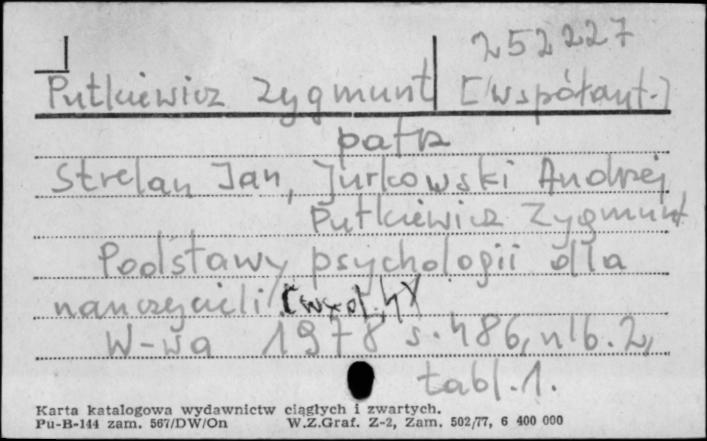 252227
Putkiewicz Zygmunt [współaut.]
patrz
Strelau Jan, Jurkowski Andrzej,
Putkiewicz Zygmunt
Podstawy psychologii dla
nauczycieli (wyd. 4)
W-wa 1978 s. 486, nlb. 2,
tabl. 1.
Karta katalogowa wydawnictw ciągłych i zwartych.
Pu-B-144 zam. 567/DW/On W.Z.Graf. Z-2, Zam. 502/77, 6 400 000